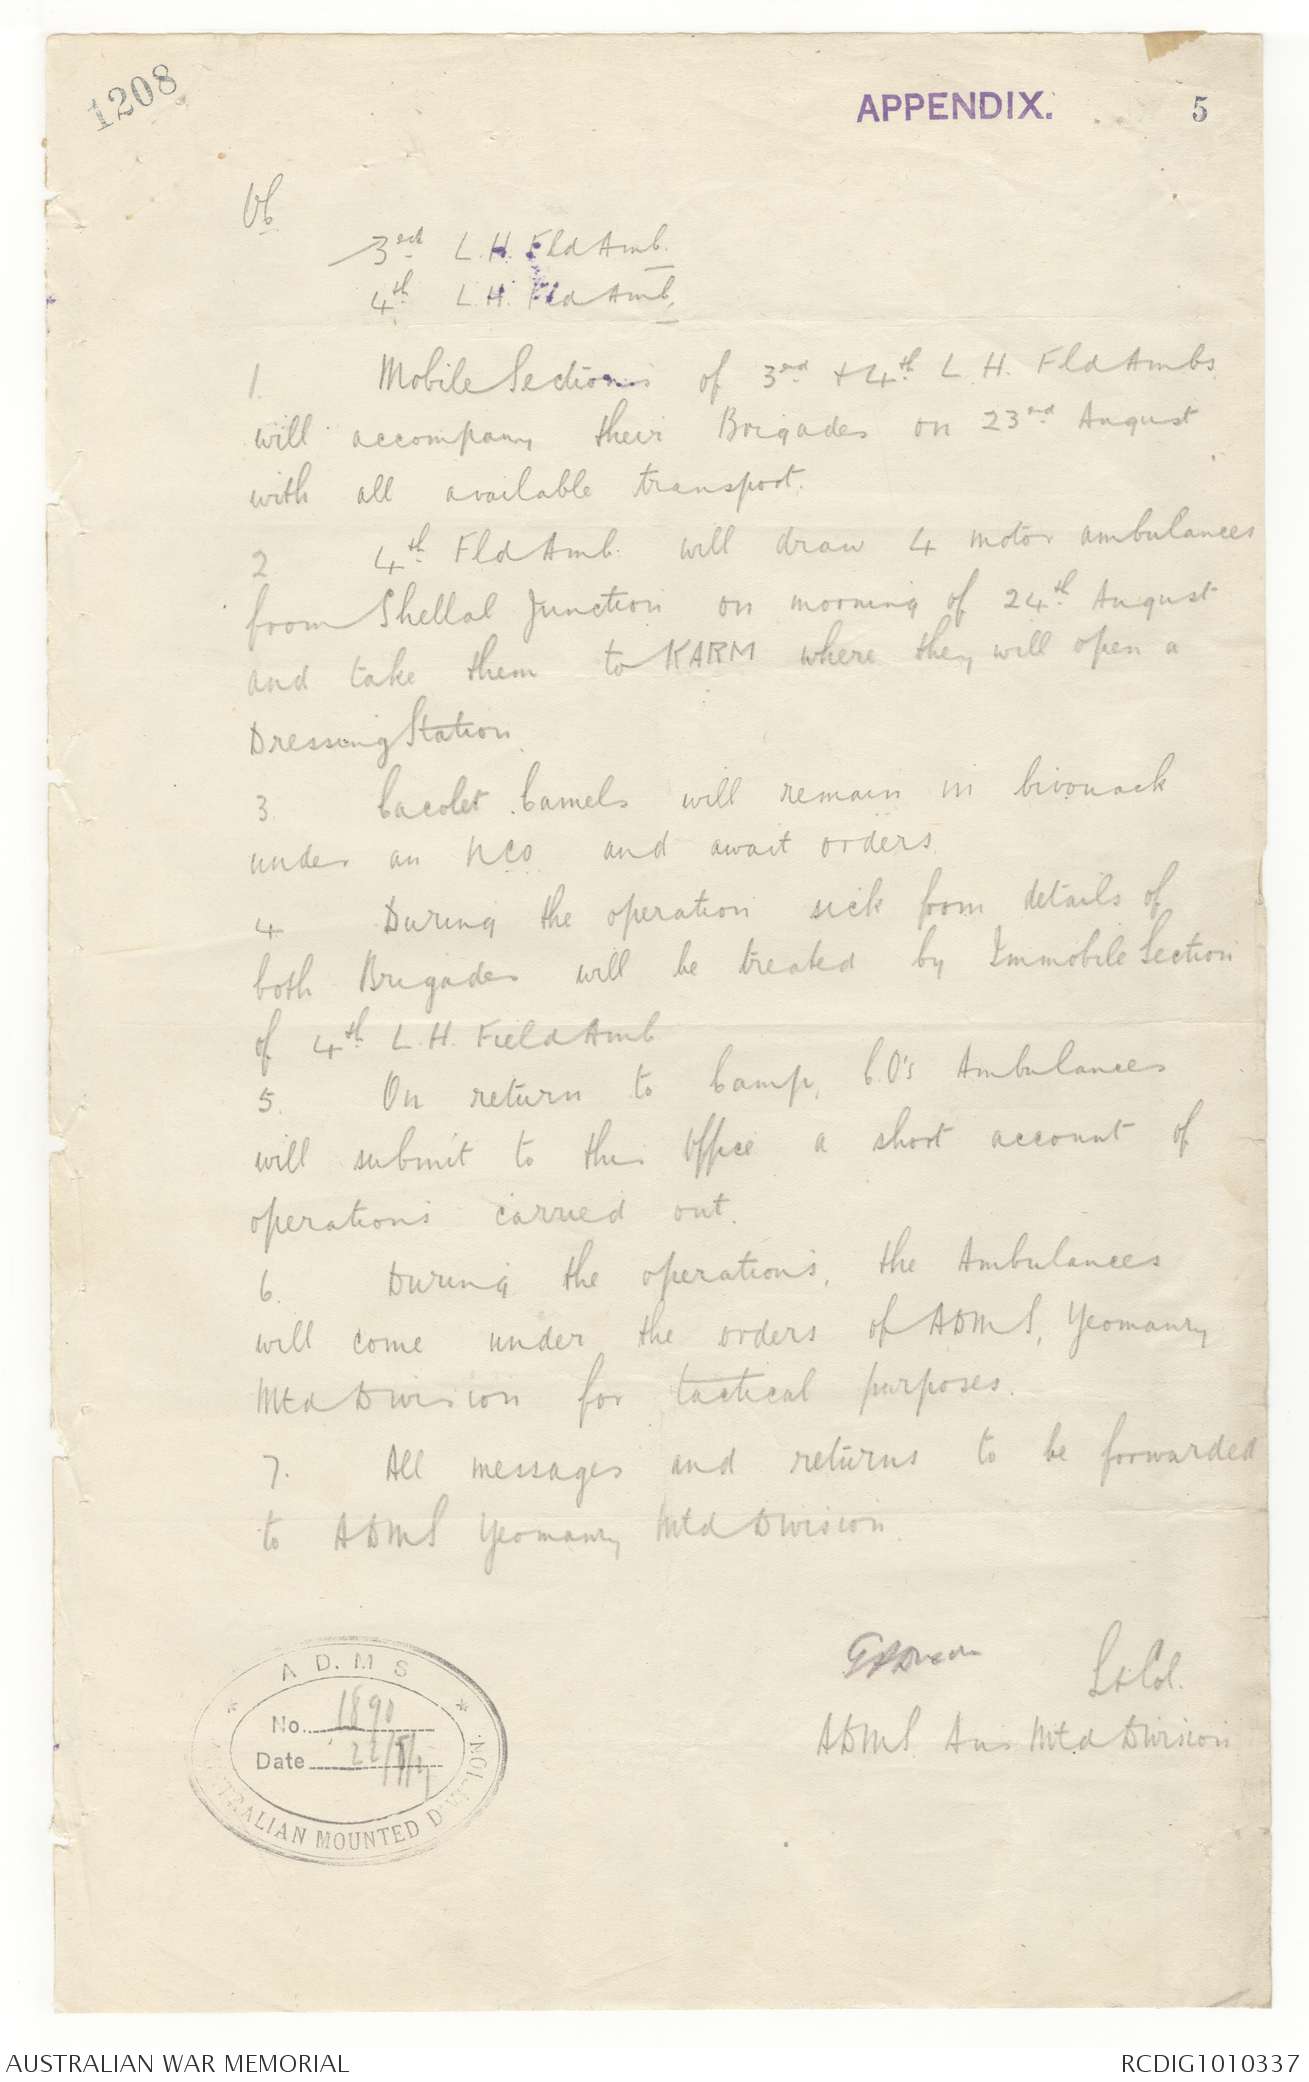 1208
APPENDIX. 5
3rd L.H. Fld Amb.
4th L.H. Fld Amb.
1. Mobile Sections of 3rd & 4th L.H. Fld Ambs
will accompany their Brigades on 23rd August
with all available transport.
2 4th Fld Amb. will draw 4 motor ambulances
from Shellal Junction on morning of 24th August
and take them to KARM where they will open a
Dressing Station
3. Cacolet Camels will remain in bivouack
under an N.C.O. and await orders.
4. During the operation sick from details of
both Brigades will be treated by Immobile Section
of 4th L.H. Field Amb
5. On return to Camp, C.O's Ambulances
will submit to this Office a short account of
operations carried out.
6. During the operations, the Ambulances
will come under the orders of ADMS, Yeomanry
Mtd Division for tactical purposes.
7. All messages and returns to be forwarded
to ADMS Yeomanry Mtd Division.
Lt Col.
ADMS Aus Mtd Division
A.D.M.S
No. 1890
Date 22/8/17
AUSTRALIAN MOUNTED DIVISION.
AUSTRALIAN WAR MEMORIAL RCDIG1010337